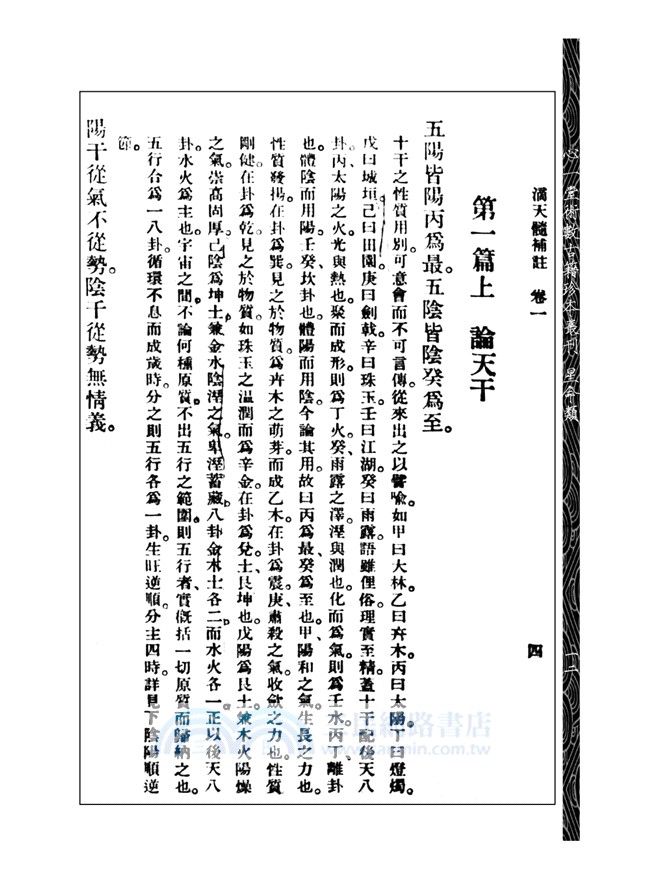 心一堂術數古籍珍本叢刊 星命類
一二
滴天髓補註 卷一
四
第一篇上 論天干
五陽皆陽丙為最。五陰皆陰癸為至。
十干之性質用別。可意會而不可言傳。從來出之以譬喻。如甲曰大林。乙曰卉木。丙曰太陽。丁曰燈燭。
戊曰城垣。己曰田園。庚曰劍戟。辛曰珠玉。壬曰江湖。癸曰雨露。語雖俚俗。理實至精。蓋十干配後天八
卦。丙、太陽之火。光與熱也。聚而成形。則為丁火。癸、雨露之澤。溼與潤也。化而為氣。則為壬水。丙丁、離卦
也。體陰而用陽。壬癸、坎卦也。體陽而用陰。今論其用。故曰丙為最、癸為至也。甲、陽和之氣。生長之力也。
性質發揚。在卦為巽。見之於物質。為卉木之萌芽。而成乙木。在卦為震。庚、肅殺之氣。收歛之力也。性質
剛健。在卦為乾。見之於物質。如珠玉之溫潤。而為辛金。在卦為兌。土、艮坤也。戊陽為艮土。兼木火陽燥
之氣。崇高固厚。己陰為坤土。兼金水陰溼之氣。卑溼蓄藏。八卦金木土各二。而水火各一。正以後天八
卦。水火為主也。宇宙之間。不論何種原質。不出五行之範圍。則五行者、實概括一切原質而歸納之也。
五行合為一八卦。循環不息而成歲時。分之則五行各為一卦。生旺逆順。分主四時。詳見下陰陽順逆
節。
陽干從氣不從勢。陰干從勢無情義。